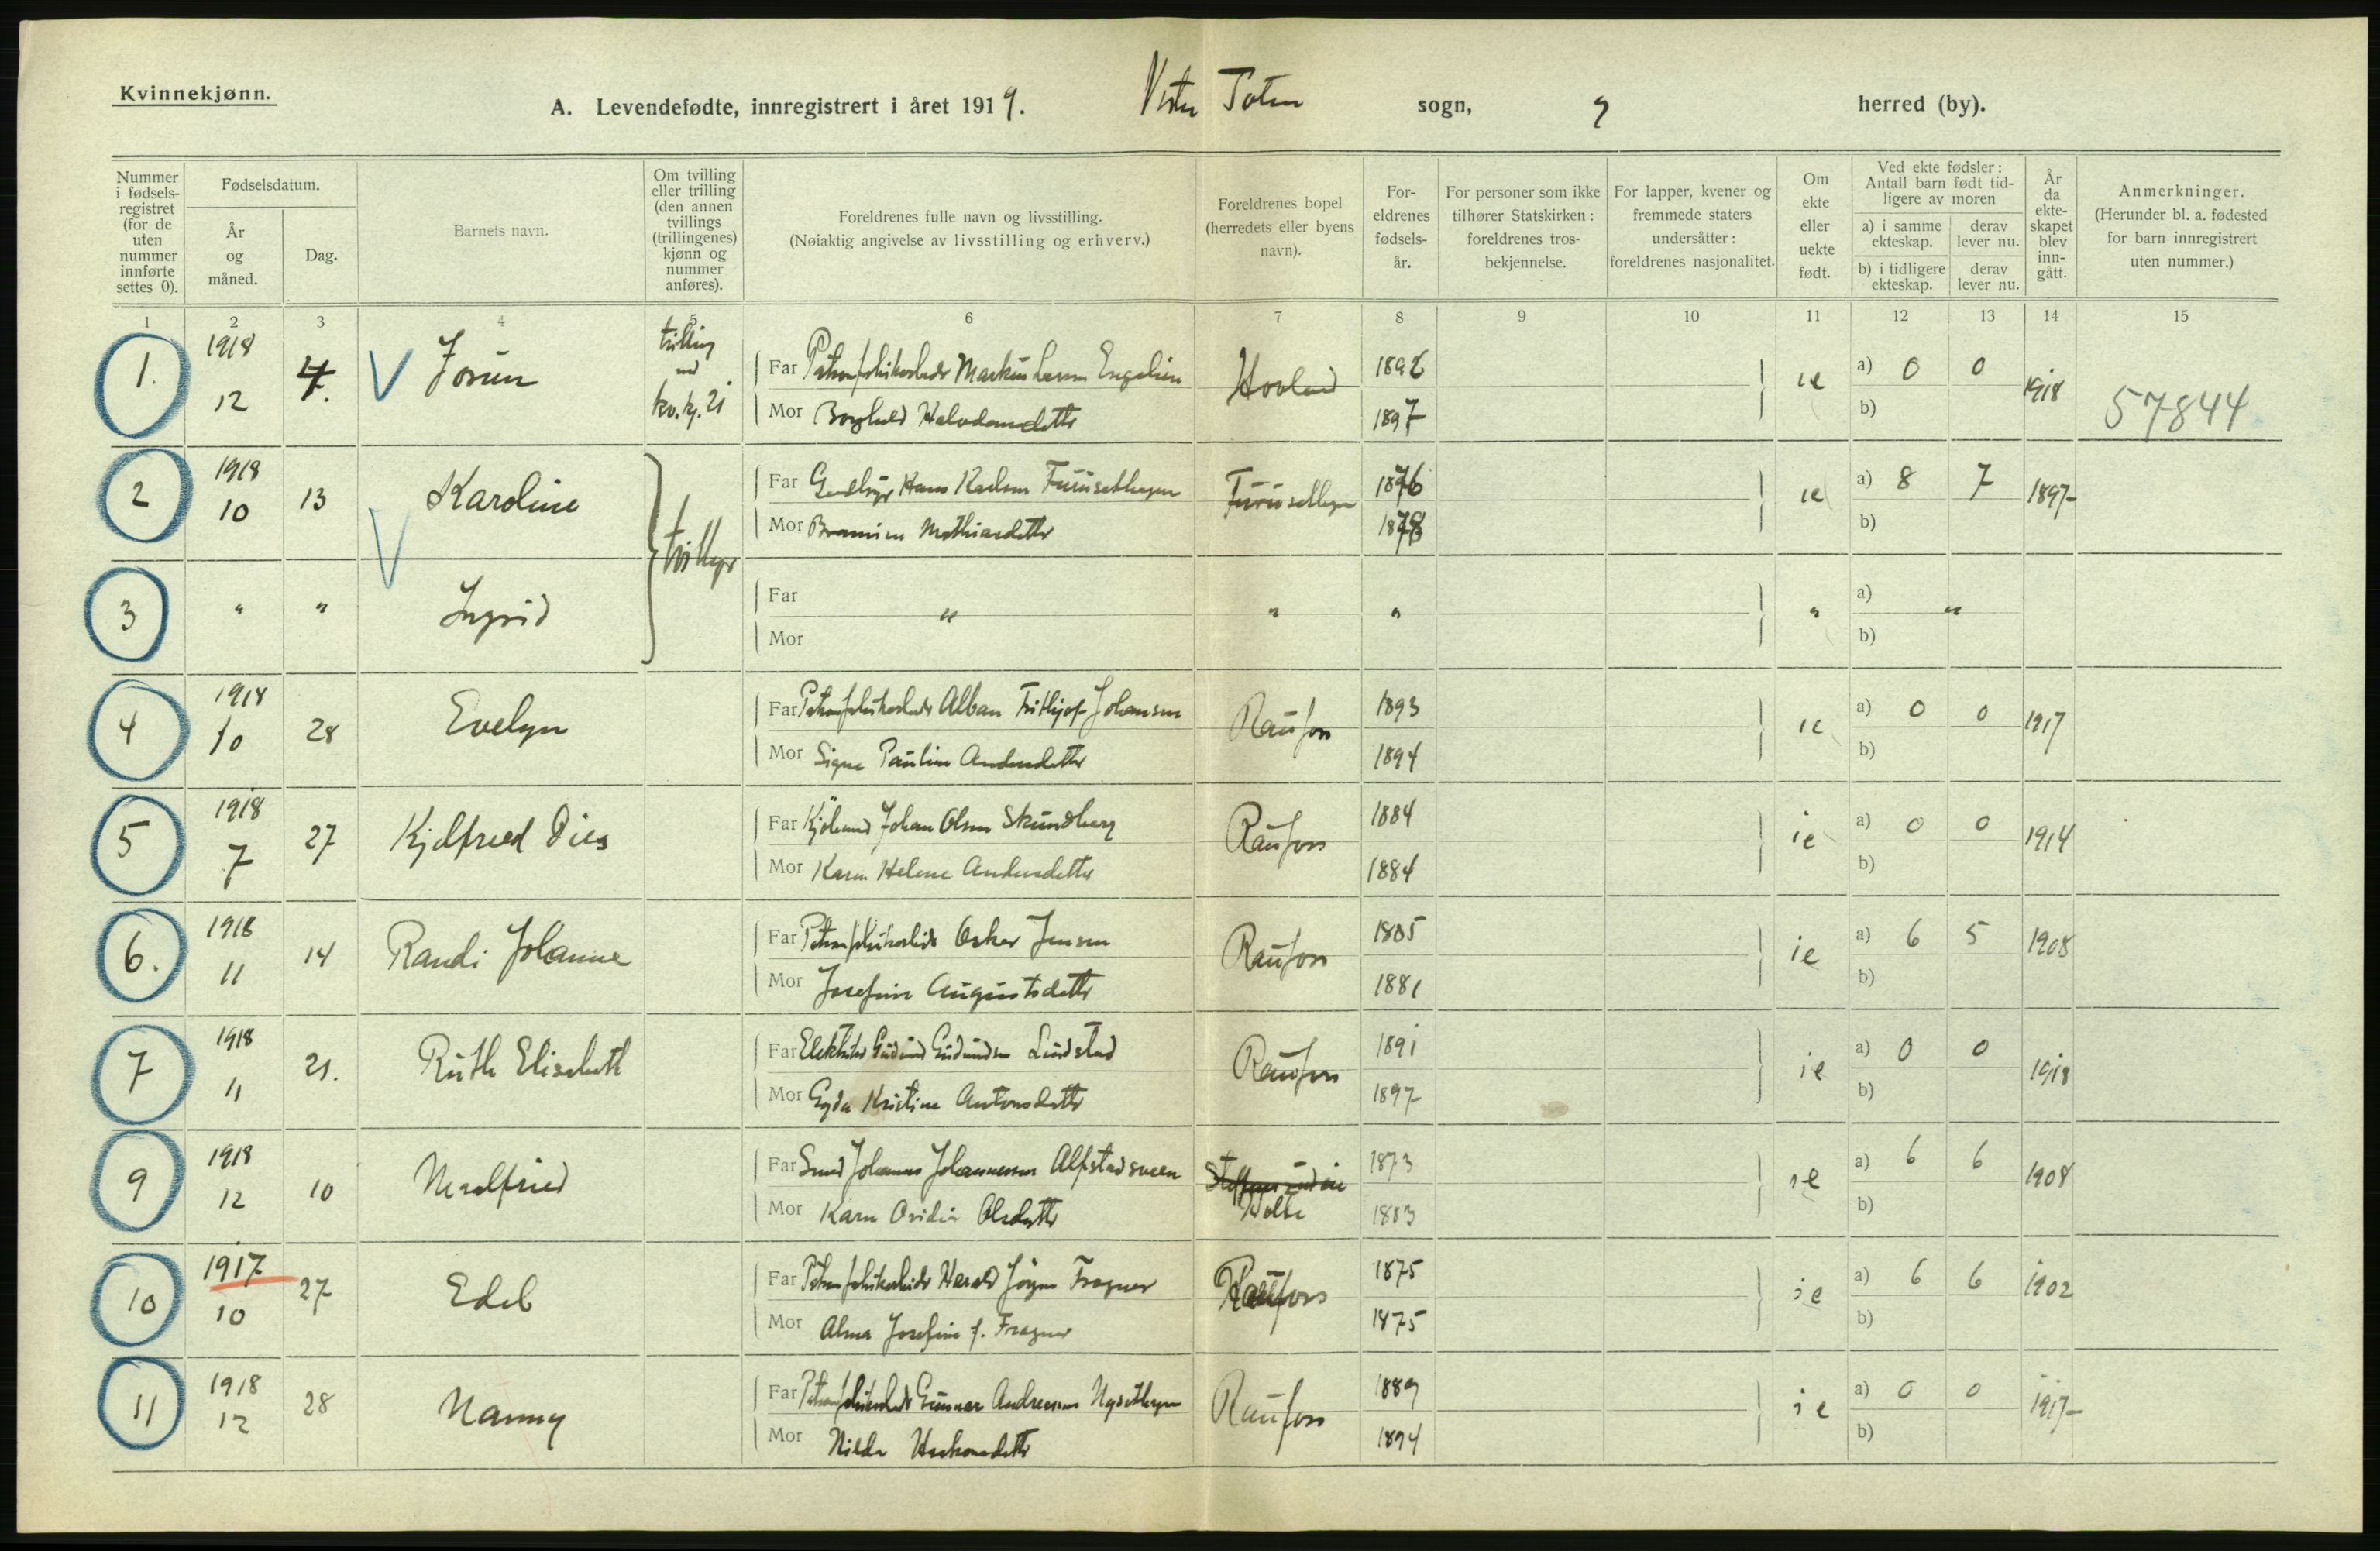 Kvinnekjønn.
A. Levendefødte, innregistrert i året 1919. Vestre Toten sogn, herred (by).
Nummer i fødsels-registret (for de uten nummer innførte settes 0).
Fødselsdatum.
År og måned.
Dag.
Barnets navn.
Om tvilling eller trilling (den annen tvillings (trillingenes) kjønn og nummer anføres).
Foreldrenes fulle navn og livsstilling.
(Nøiaktig angivelse av livsstilling og erhverv.)
Foreldrenes bopel (herredets eller byens navn).
For-eldrenes fødsels-år.
For personer som ikke tilhører Statskirken: foreldrenes tros-bekjennelse.
For lapper, kvener og fremmede staters undersåtter: foreldrenes nasjonalitet.
Om ekte eller uekte født.
Ved ekte fødsler: Antall barn født tid-ligere av moren
a) i samme ekteskap. derav lever nu.
b) i tidligere ekteskap. derav lever nu.
År da ekte-skapet blev inn-gått.
Anmerkninger.
(Herunder bl. a. fødested for barn innregistrert uten nummer.)
1 2 3 4 5 6 7 8 9 10 11 12 13 14 15
1. 1918 12 4. Jorun tvilling med kv. kj. 21
Far Markus Larsen Engelien Hovland 1892 ie a) 0 0 1918 57844
Mor Borghild Halvdansdatter 1897 b)
2 1918 10 13 Karoline tvillinger
Far Hans Karlsen Furusethagen 1876 ie a) 8 7 1897
Mor Mathiasdatter 1878 b)
3 " " Ingrid
Far " " " " a) "
Mor b)
4 1918 10 28 Evelyn
Far Alban Frithjof Johansen Raufoss 1893 ie a) 0 0 1917
Mor Signe Pauline Andersdatter 1894 b)
5 1918 7 27 Kjelfried Dies
Far Johan Olsen Skundberg Raufoss 1884 ie a) 0 0 1914
Mor Karen Helene Andersdatter 1884 b)
6. 1918 11 14 Randi Johanne
Far Oskar Jensen Raufoss 1885 ie a) 6 5 1908
Mor Josefine Augustsdatter 1881 b)
7 1918 11 21. Ruth Elisabeth
Far Gudmund Gudmundsen Lindstad Raufoss 1891 ie a) 0 0 1918
Mor Gyda Kristine Antonsdatter 1897 b)
9 1918 12 10 Maalfried
Far Smed Johannes Johannessen Alfstadsveen 1873 ie a) 6 6 1908
Mor Karen Ovidia Olsdatter 1883 b)
10 1917 10 27 Edel
Far Harald Jörgen Fragner Raufoss 1875 ie a) 6 6 1902
Mor Alma Josefine f. Fragner 1875 b)
11 1918 12 28 Nanny
Far Gunnar Andreassen Raufoss 1889 ie a) 0 0 1917
Mor Hilda Haakonsdatter 1894 b)